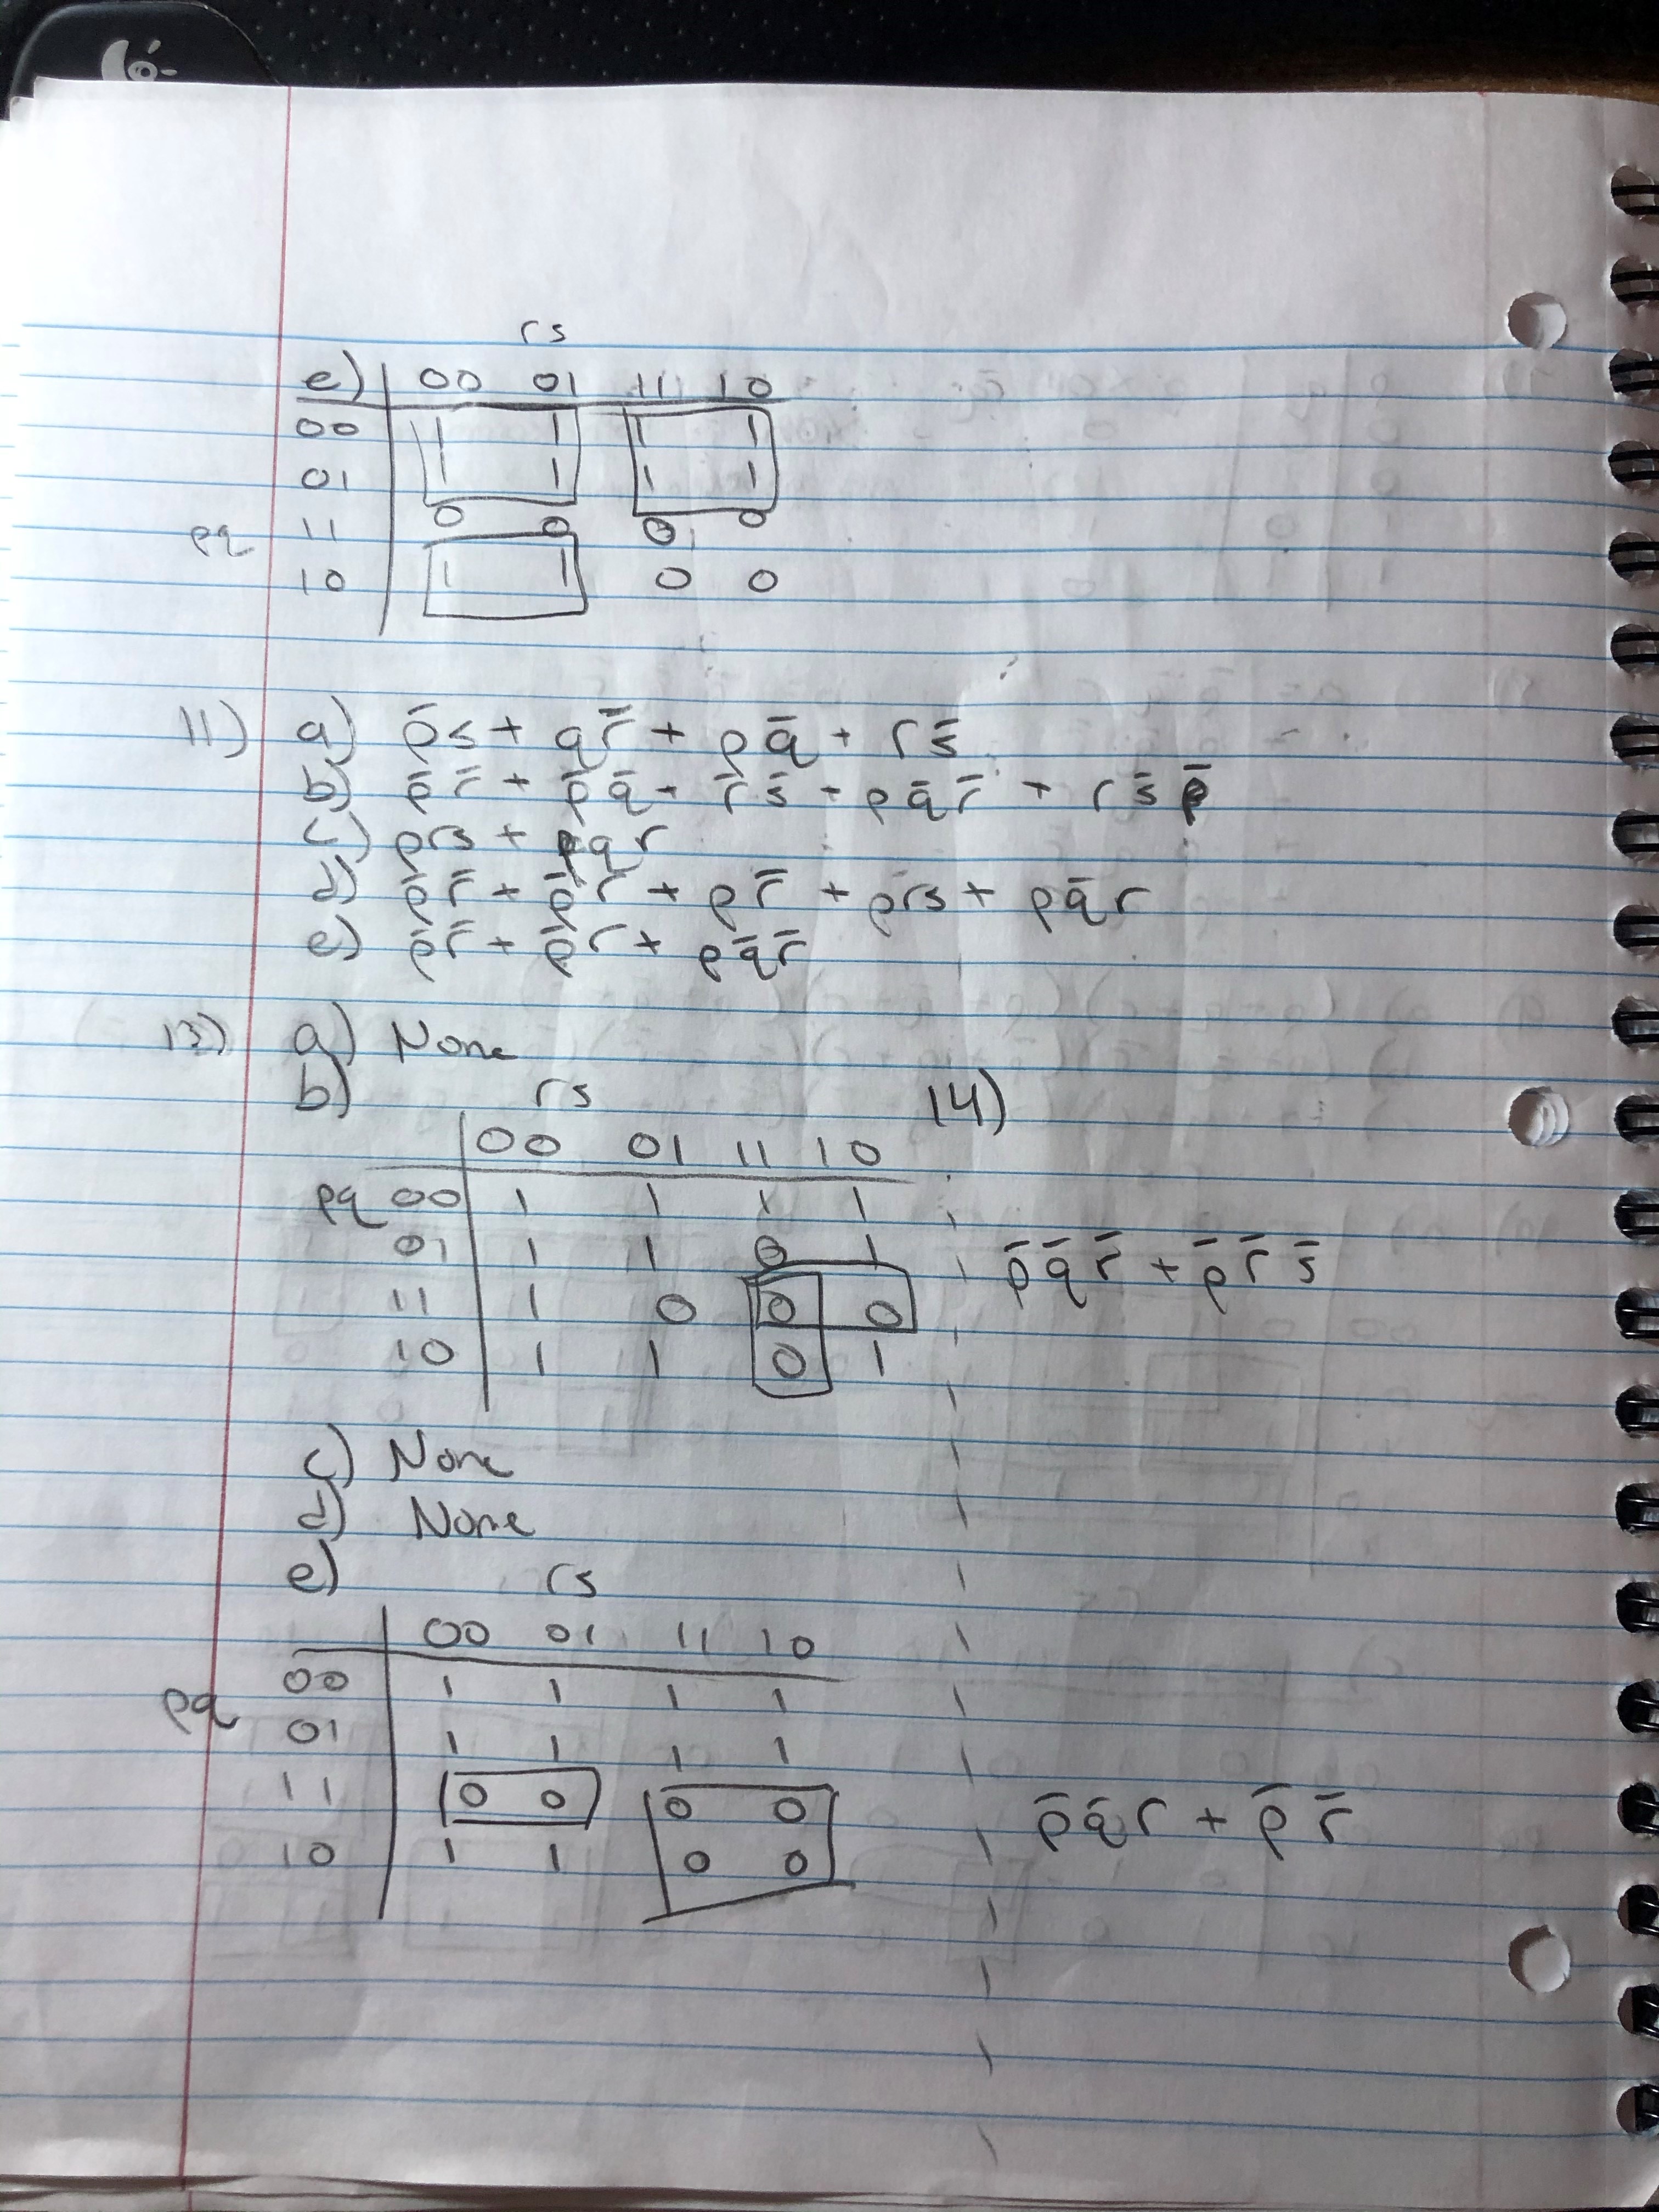 rs
e) 00 01 11 10
00 1 1 1 1
01 1 1 1 1
pq 11 0 0 0 0
10 1 1 0 0
11) a) p̄s + qr̄ + pq̄ + rs̄
b) p̄r̄ + p̄q̄ + r̄s̄ + pq̄r̄ + rs̄p̄
c) prs + pqr
d) p̄r̄ + p̄r + pr̄ + prs + pq̄r
e) p̄r̄ + p̄r + pq̄r̄
13) a) None
b) rs 14)
00 01 11 10
pq 00 1 1 1 1
01 1 1 0 1 p̄q̄r̄ + p̄r̄s̄
11 1 0 0 0
10 1 1 0 1
c) None
d) None
e) rs
00 01 11 10
pq 00 1 1 1 1
01 1 1 1 1
11 0 0 0 0 p̄q̄r + p̄r̄
10 1 1 0 0